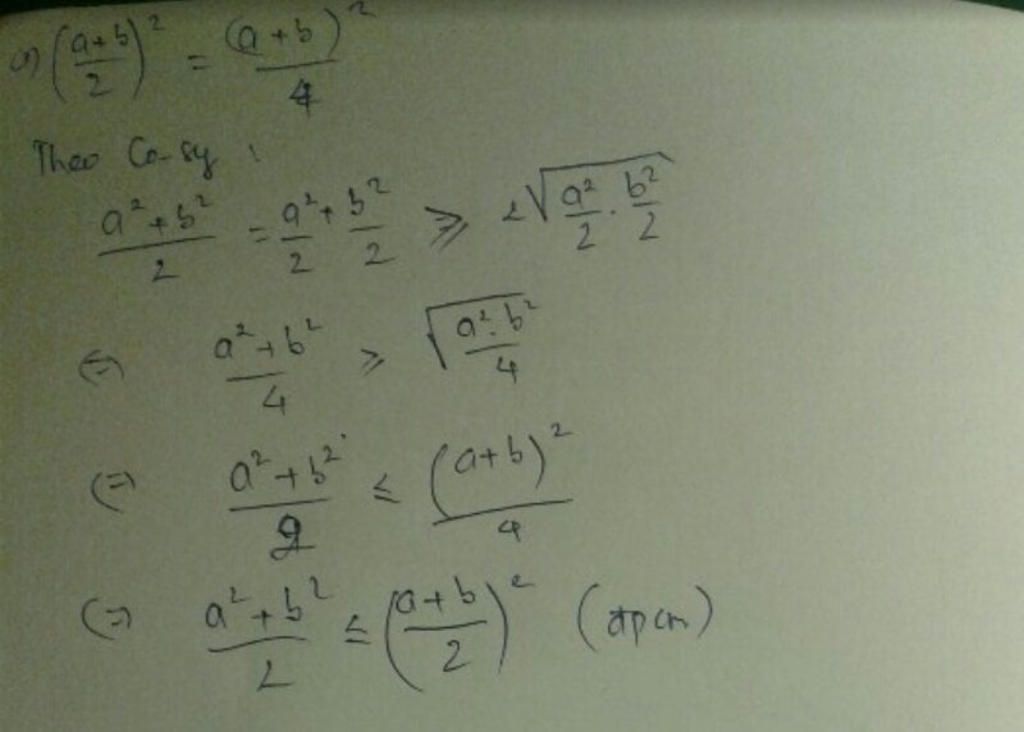 a) (a+b/2)² = (a+b)²/4
Theo Co-sy :
a²+b²/2 = a²/2 + b²/2 ≥ 2√(a²/2 . b²/2)
(=) a²+b²/4 ≥ √(a².b²/4)
(=) a²+b²/2 ≤ (a+b)²/4
(=) a²+b²/2 ≤ (a+b/2)² (đpcm)